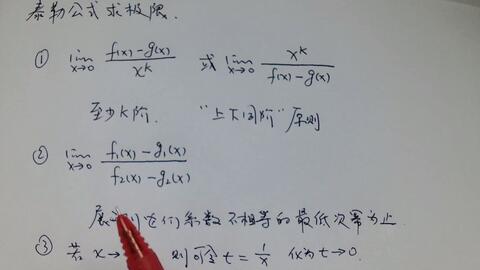 泰勒公式求极限.
① lim x→0 f(x)-g(x) / x^k 或 lim x→0 x^k / f(x)-g(x)
至少k阶. “上下同阶”原则
② lim x→0 f₁(x)-g₁(x) / f₂(x)-g₂(x)
展 到它们系数不相等的最低次幂为止.
③ 若 x→ 则可令 t=1/x 化为 t→0.